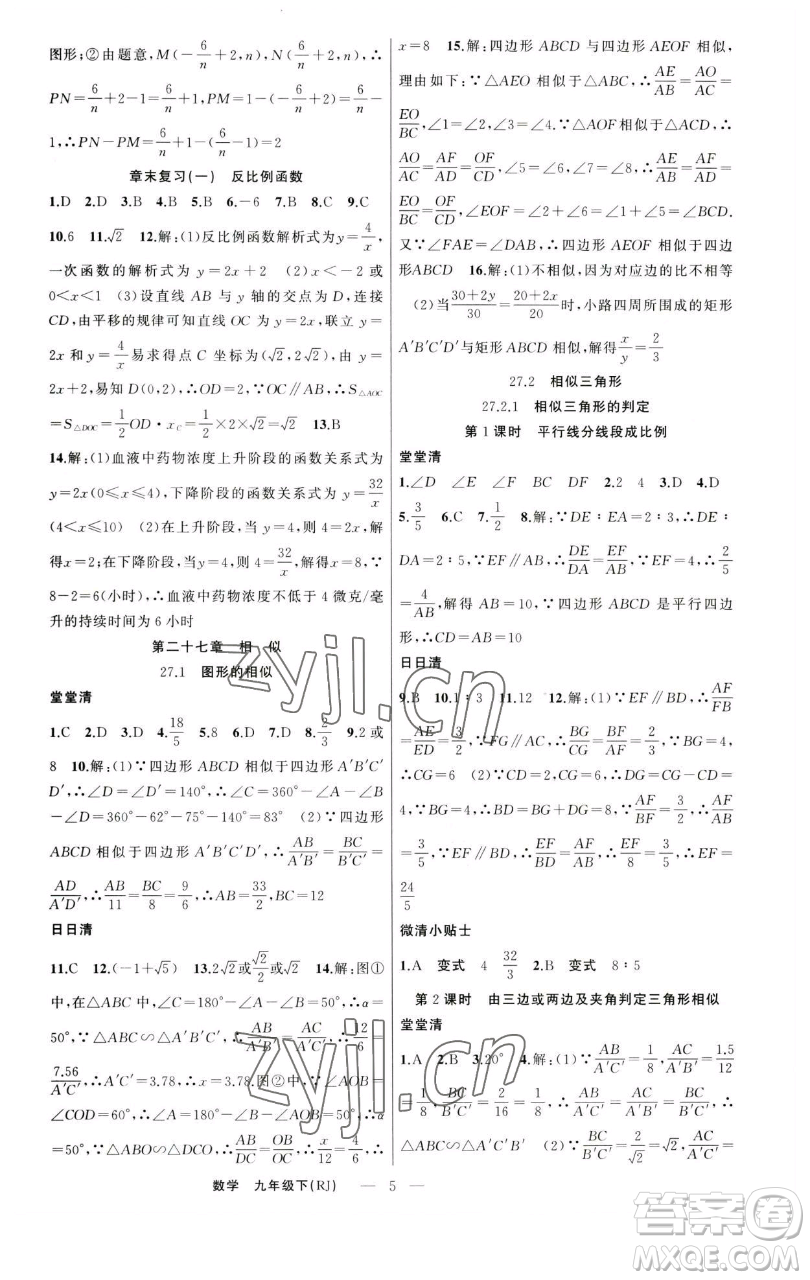 图形;②由题意,M(-6/n+2,n),N(6/n+2,n),∴
PN=6/n+2-1=6/n+1,PM=1-(-6/n+2)=6/n-
1,∴PN-PM=6/n+1-(6/n-1)=2
章末复习(一) 反比例函数
1.D 2.D 3.B 4.B 5.B 6.-6 7.B 8.C 9.C
10.6 11.√2 12.解:(1)反比例函数解析式为y=4/x,
一次函数的解析式为y=2x+2 (2)x<-2或
0<x<1 (3)设直线AB与y轴的交点为D,连接
CD,由平移的规律可知直线OC为y=2x,联立y=
2x和y=4/x易求得点C坐标为(√2,2√2),由y=
2x+2,易知D(0,2),∴OD=2,∵OC∥AB,∴S△AOC
=S△DOC=1/2OD·xC=1/2×2×√2=√2 13.B
14.解:(1)血液中药物浓度上升阶段的函数关系式为
y=2x(0≤x≤4),下降阶段的函数关系式为y=32/x
(4<x≤10) (2)在上升阶段,当y=4,则4=2x,解
得x=2;在下降阶段,当y=4,则4=32/x,解得x=8,∵
8-2=6(小时),∴血液中药物浓度不低于4微克/毫
升的持续时间为6小时
第二十七章 相 似
27.1 图形的相似
堂堂清
1.C 2.D 3.D 4.18/5 5.8 6.D 7.D 8.2/3 9.2或
8 10.解:(1)∵四边形ABCD相似于四边形A′B′C′
D′,∴∠D=∠D′=140°,∴∠C=360°-∠A-∠B
-∠D=360°-62°-75°-140°=83° (2)∵四边形
ABCD相似于四边形A′B′C′D′,∴AB/A′B′=BC/B′C′=
AD/A′D′,∴AB/11=BC/8=9/6,∴AB=33/2,BC=12
日日清
11.C 12.(-1+√5) 13.2√2或√2/2或√2 14.解:图①
中,在△ABC中,∠C=180°-∠A-∠B=50°,∴α=
50°,∵△ABC∽△A′B′C′,∴AB/A′B′=AC/A′C′,∴12/6=
7.56/A′C′,∴A′C′=3.78,∴x=3.78.图②中,∵∠AOB=
∠COD=60°,∴∠ABO=180°-∠A-∠AOB=50°,∴α
=50°,∵△ABO∽△DCO,∴AB/DC=OB/OC,∴x/12=4/6,∴
x=8 15.解:四边形ABCD与四边形AEOF相似,
理由如下:∵△AEO相似于△ABC,∴AE/AB=AO/AC=
EO/BC,∠1=∠2,∠3=∠4.∵△AOF相似于△ACD,∴
AO/AC=AF/AD=OF/CD,∠5=∠7,∠6=∠1,∴AE/AB=AF/AD=
EO/BC=OF/CD,∠EOF=∠2+∠6=∠1+∠2=∠BCD.
又∵∠FAE=∠DAB,∴四边形AEOF相似于四边
形ABCD 16.解:(1)不相似,因为对应边的比不相等
(2)当30+2y/30=20+2x/20时,小路四周所围成的矩形
A′B′C′D′与矩形ABCD相似,解得x/y=2/3
27.2 相似三角形
27.2.1 相似三角形的判定
第1课时 平行线分线段成比例
堂堂清
1.∠D ∠E ∠F BC DF 2.2 4 3.D 4.D
5.3/5 6.C 7.1/2 8.解:∵DE∶EA=2∶3,∴DE∶
DA=2∶5,∵EF∥AB,∴DE/DA=EF/AB,∴2/5=
4/AB,解得AB=10,∵四边形ABCD是平行四边
形,∴CD=AB=10
日日清
9.B 10.1∶3 11.12 12.解:(1)∵EF∥BD,∴AF/FB
=AE/ED=3/2,∵FG∥AC,∴BG/CG=BF/AF=2/3,∴4/CG=2/3,
∴CG=6 (2)∵CD=2,CG=6,∴DG=CG-CD=
4,∵BG=4,∴BD=BG+DG=8,∵AF/BF=3/2,∴AF/AB=
3/5,∵EF∥BD,∴EF/BD=AF/AB,∴EF/8=3/5,∴EF=
24/5
微清小贴士
1.A 变式 4 32/3 2.B 变式 8∶5
第2课时 由三边或两边及夹角判定三角形相似
堂堂清
1.A 2.B 3.20° 4.解:(1)∵AB/A′B′=1/8,AC/A′C′=1.5/12
=1/8,BC/B′C′=2/16=1/8,∴AB/A′B′=AC/A′C′=BC/B′C′,∴
△ABC∽△A′B′C′ (2)∵BC/B′C′=2/√2=√2,AC/A′C′=
数学 九年级下(RJ) — 5 —
zyjl.cn
zyjl.cn
答案圈
MXQE.COM